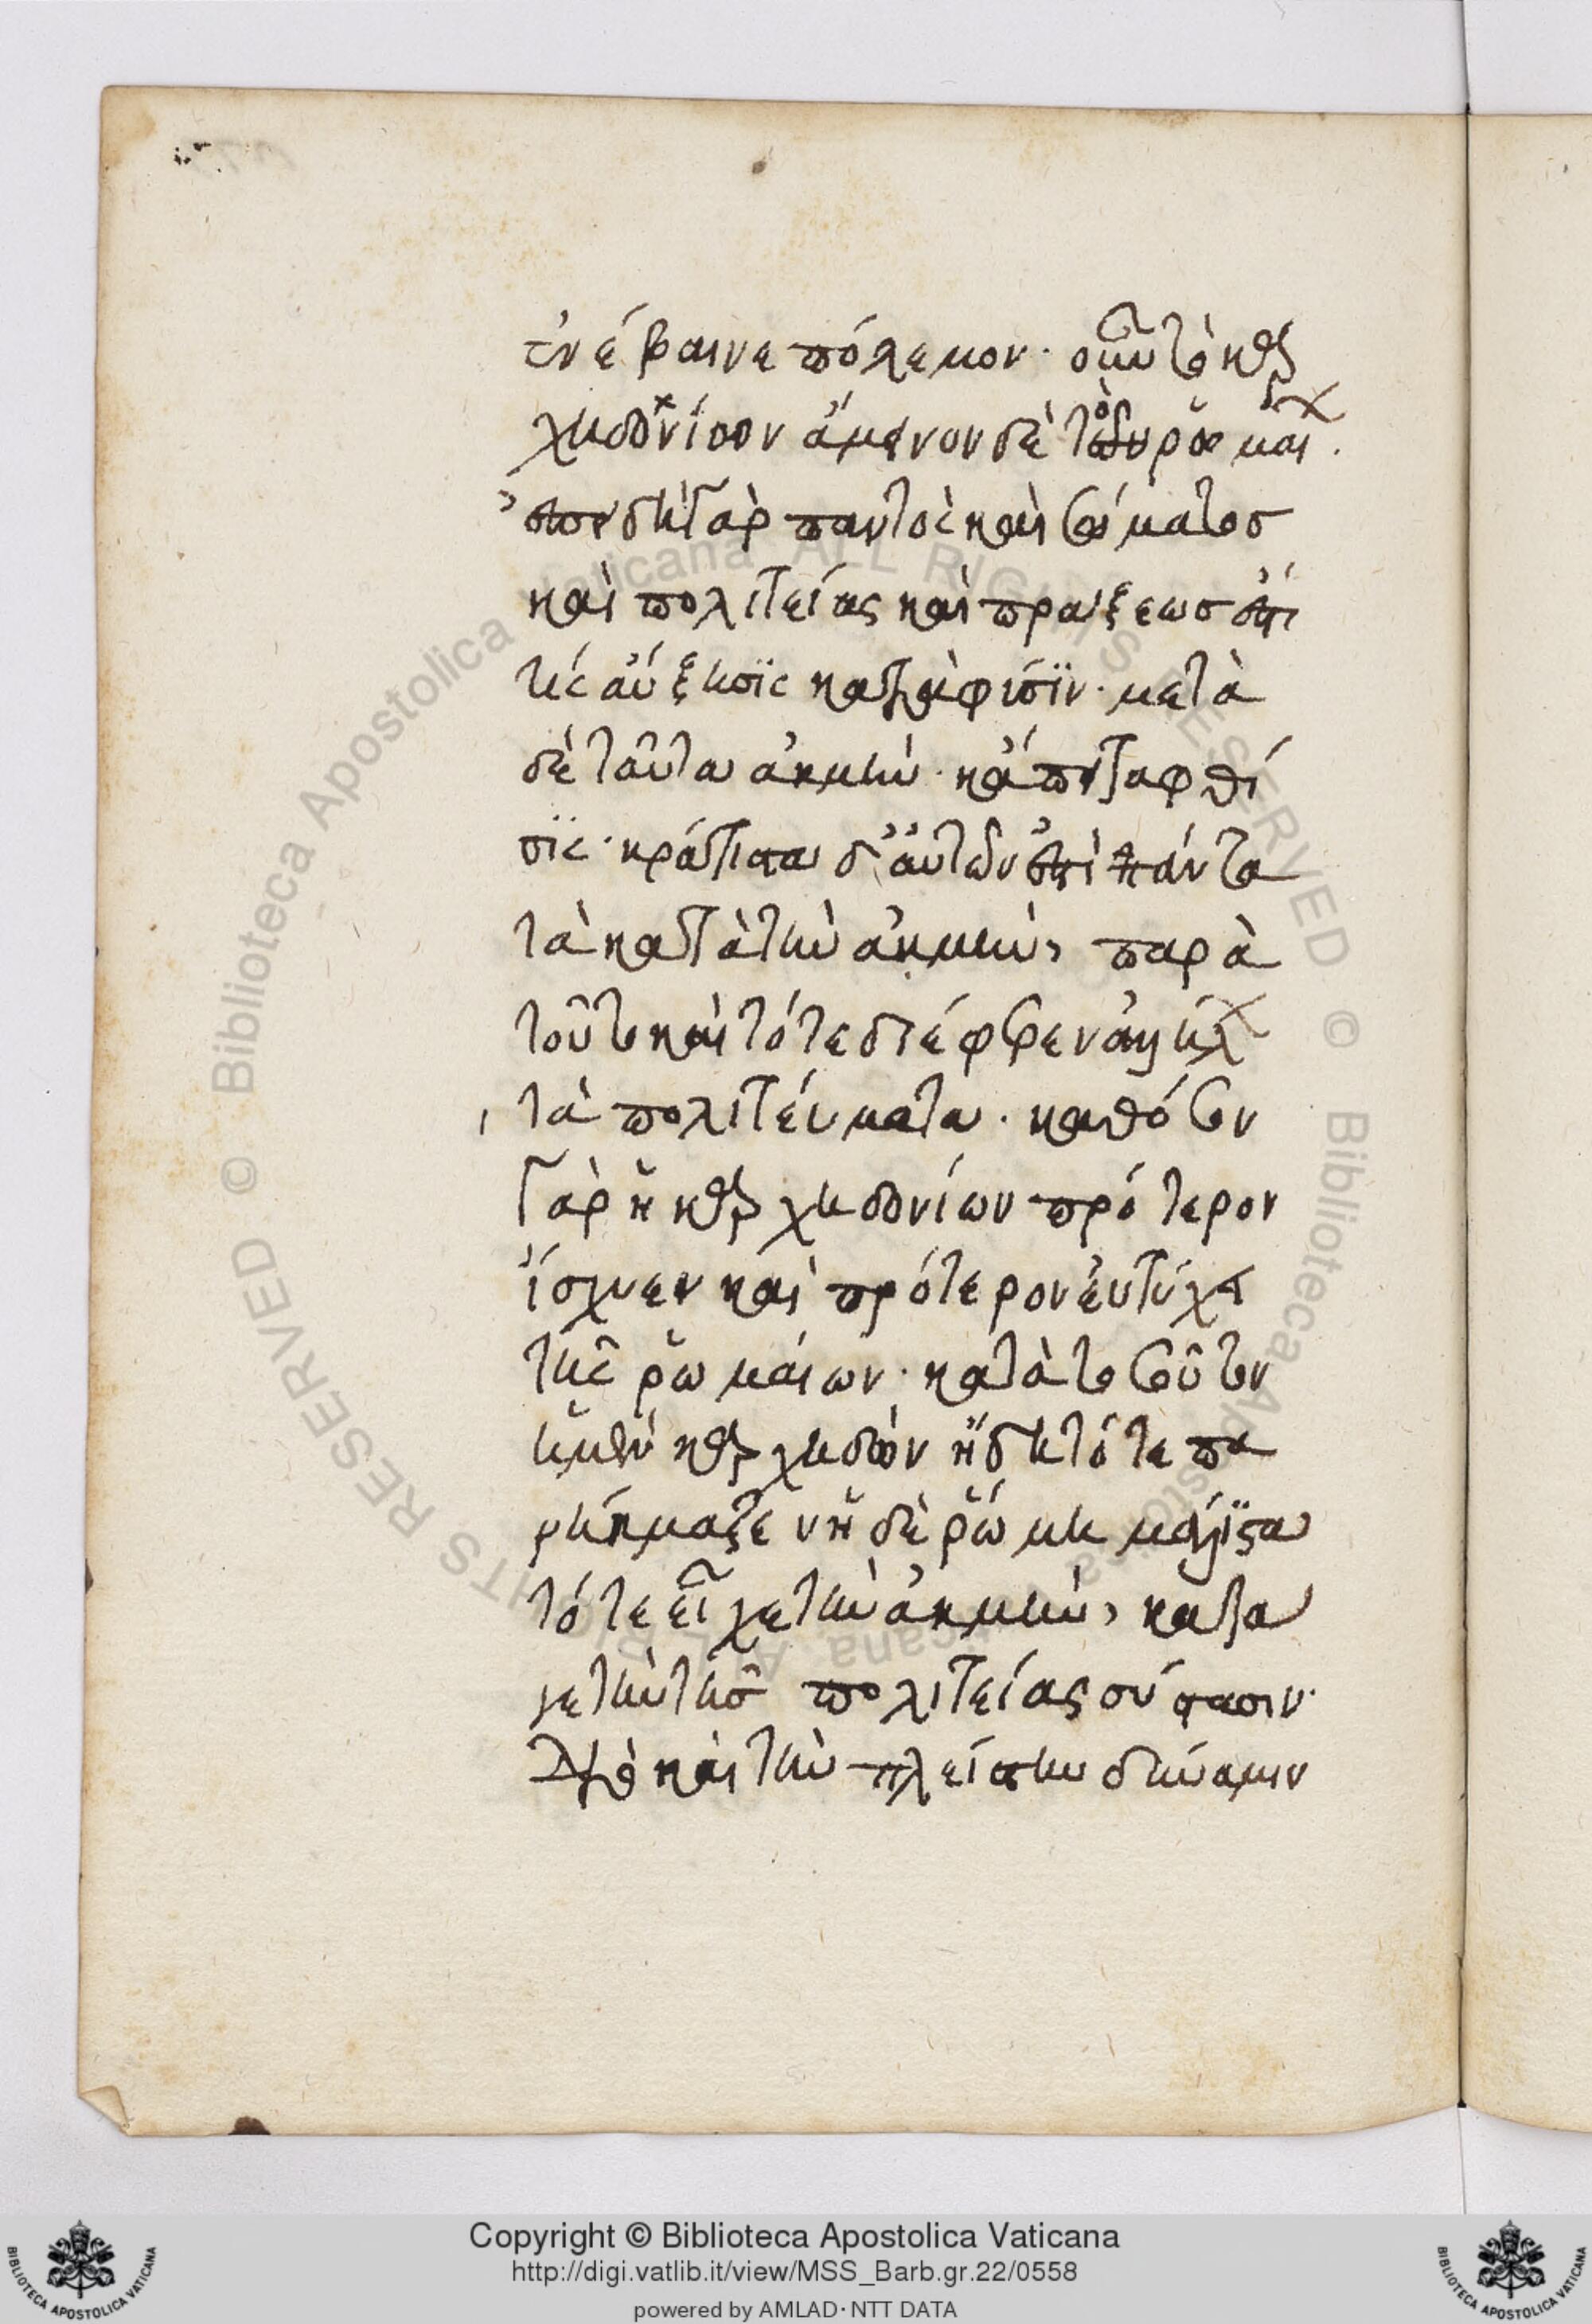 ἐνέβαινε πόλεμον· οὖν τὸ καρ
χηδονίων ἄμεινον δὲ τὸ ῥωμαι.
ἐπειδὴ γὰρ παντὸς καὶ σώματος
καὶ πολιτείας καὶ πράξεως ἐστί
τίς αὔξησις κατὰ φύσιν· μετὰ
δὲ ταῦτα ἀκμή· κἄπειτα φθί
σις· κράτιστα δ' αὐτῶν ἐστὶ πάντα
τὰ κατὰ τὴν ἀκμήν, παρὰ
τοῦτο καὶ τότε διέφερεν ἀλλήλ
τὰ πολιτεύματα· καθ' ὅσον
γὰρ ἡ καρχηδονίων πρότερον
ἴσχυεν καὶ πρότερον εὐτύχει
τῆς ῥωμαίων· κατὰ τοσοῦτον
ἡ μὲν καρχηδὼν ἤδη τότε πα
ρήκμαζεν ἡ δὲ ῥώμη μάλιστα
τότε εἶχε τὴν ἀκμήν, κατά
γε τὴν τῆς πολιτείας σύστασιν·
διὸ καὶ τὴν πλείστην δύναμιν
Copyright © Biblioteca Apostolica Vaticana
http://digi.vatlib.it/view/MSS_Barb.gr.22/0558
powered by AMLAD·NTT DATA
BIBLIOTECA APOSTOLICA VATICANA
BIBLIOTECA APOSTOLICA VATICANA